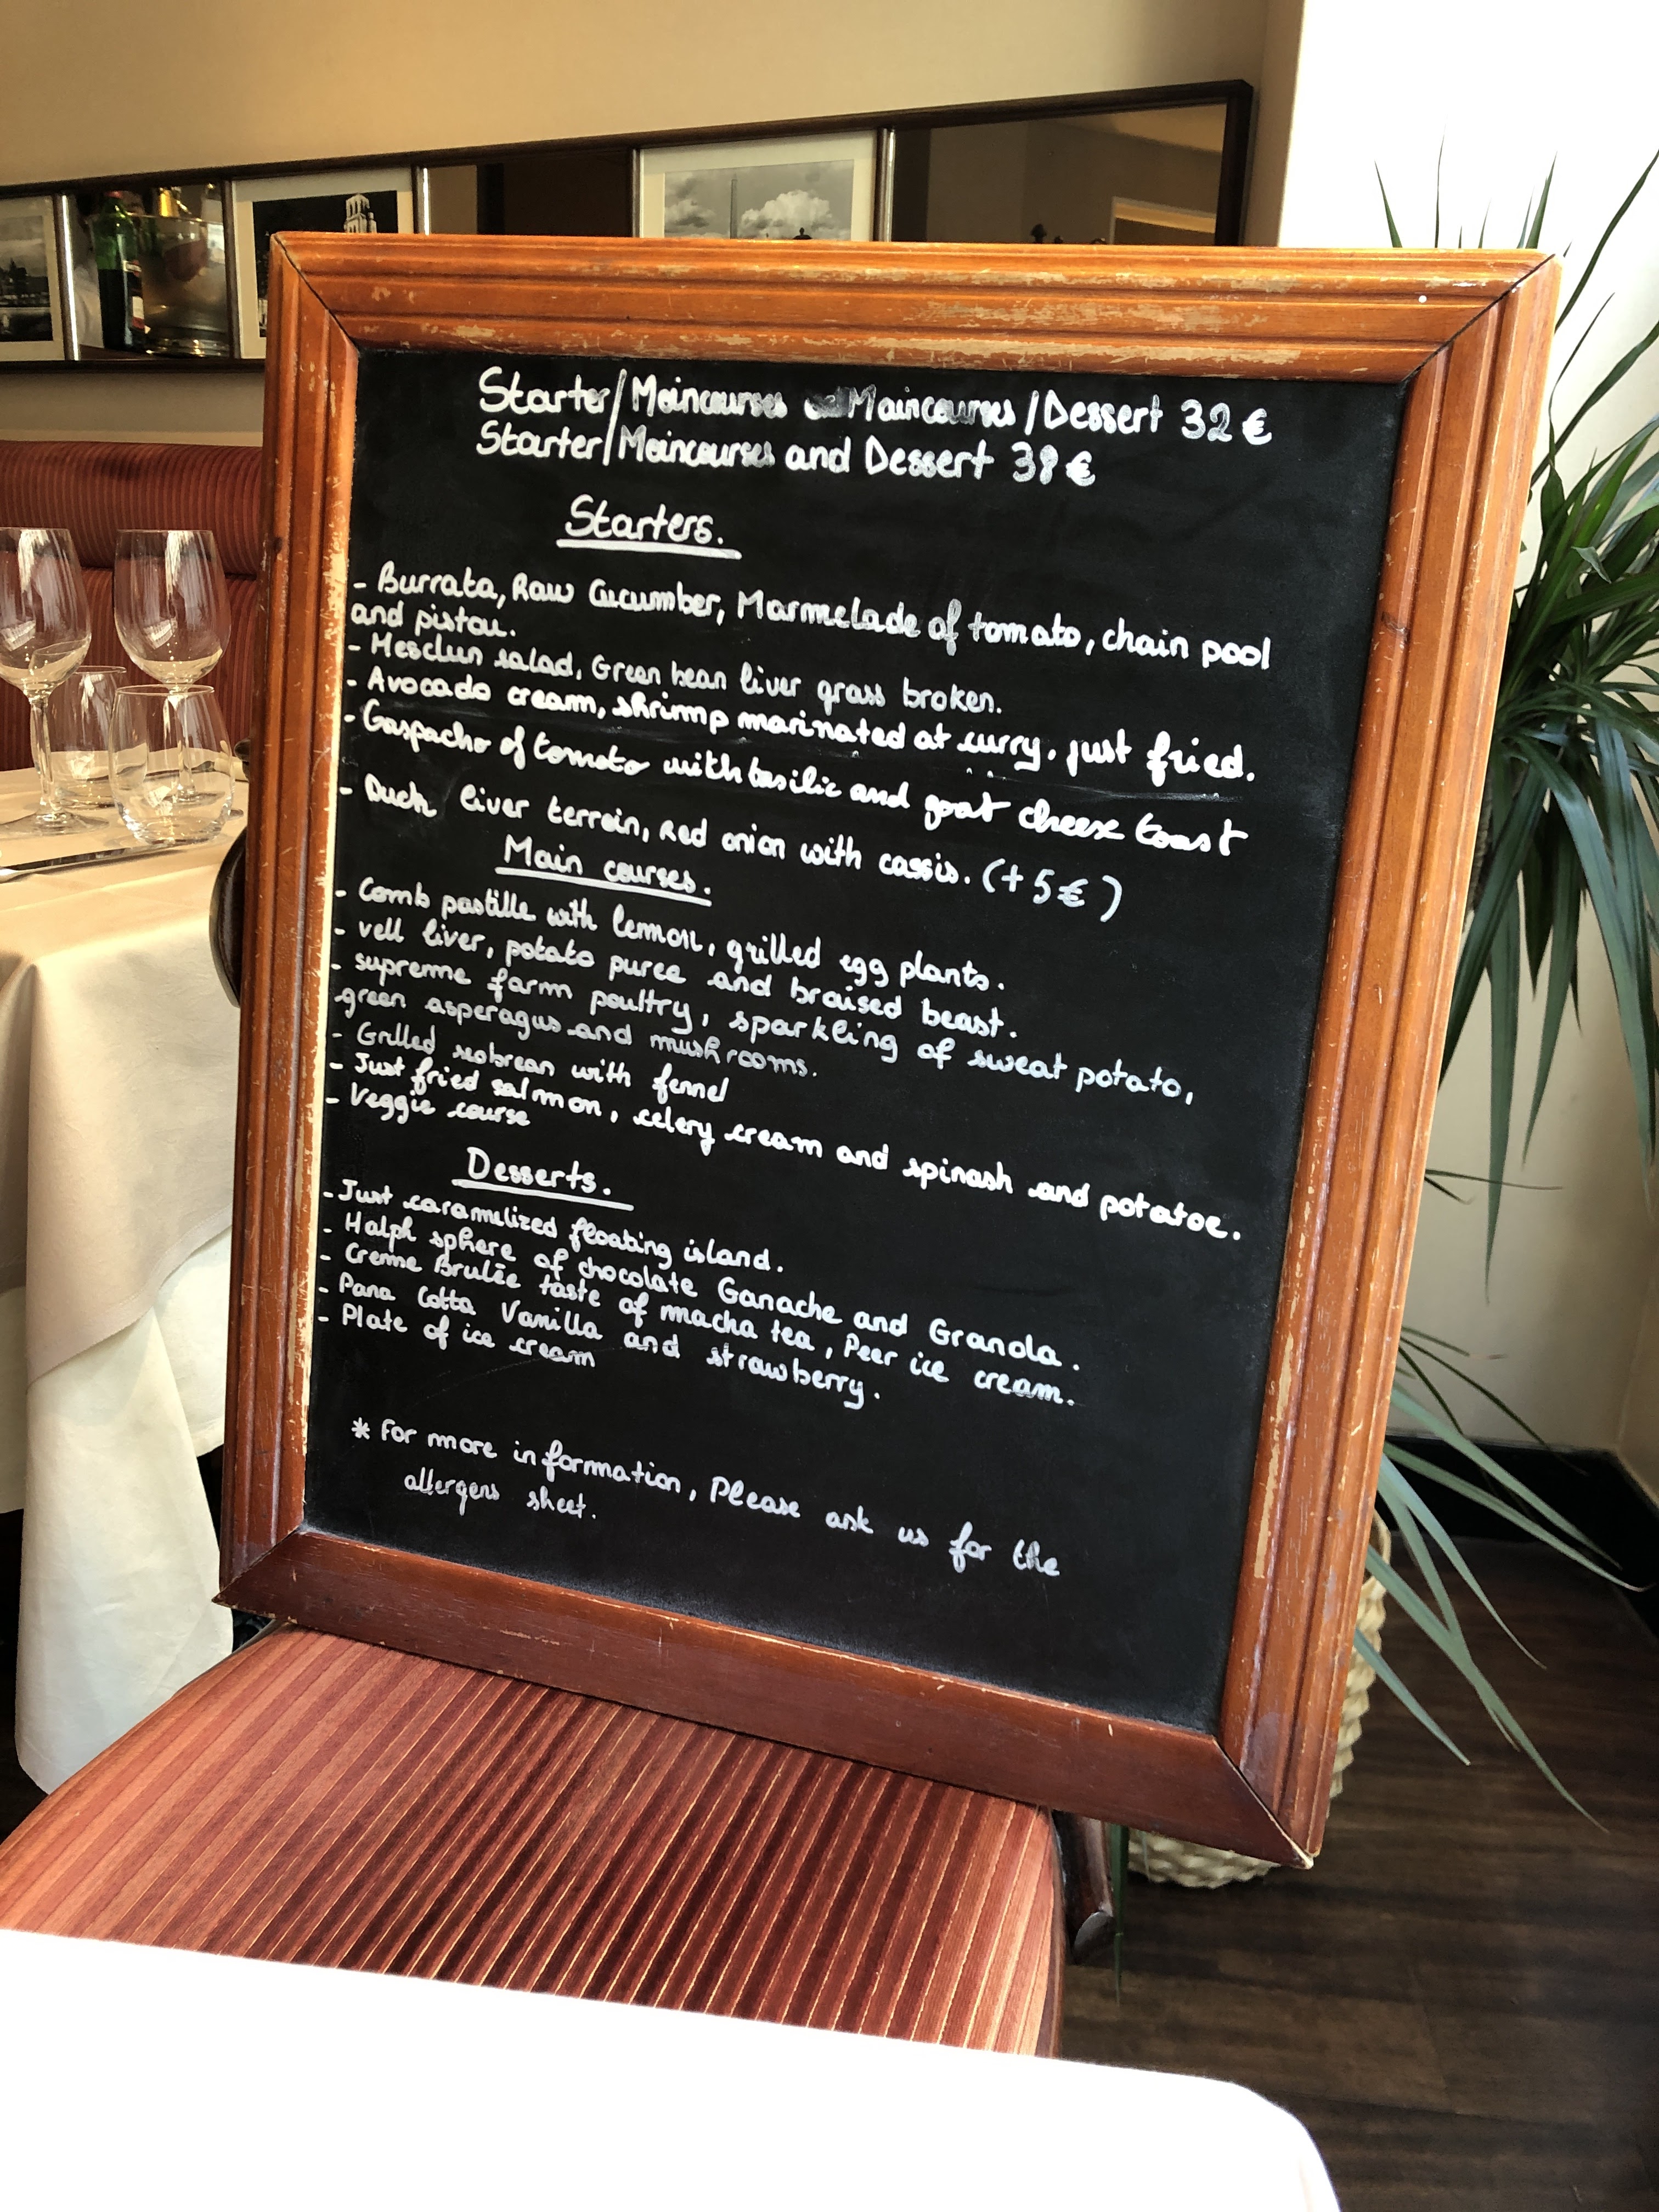 Starter/Maincourses or Maincourses/Dessert 32 €
Starter/Maincourses and Dessert 38 €
Starters.
- Burrata, Raw Cucumber, Marmelade of tomato, chain pool
and pistou.
- Mesclun salad, Green bean liver grass broken.
- Avocado cream, shrimp marinated at curry, just fried.
- Gaspacho of tomato with basilic and goat cheese toast
- Duck liver terrein, red onion with cassis. (+ 5 € )
Main courses.
- Comb pastille with lemon, grilled egg plants.
- vell liver, potato puree and braised beast.
- supreme farm poultry, sparkling of sweat potato,
green asperagus and mushrooms.
- Grilled seabrean with fennel
- Just fried salmon, celery cream and spinash and potatoe.
- Veggie course
Desserts.
- Just caramelized floating island.
- Halph sphere of chocolate Ganache and Granola.
- Creme Brulée taste of macha tea, Peer ice cream.
- Pana Cotta Vanilla and strawberry.
- Plate of ice cream
* For more information, Please ask us for the
allergens sheet.